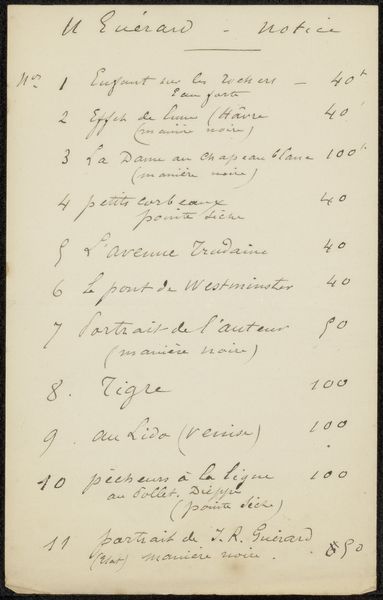 H Guérard - Notice
Nos 1 Enfant sur les rochers - 40f
Eau forte
2 Effet de lune (Hâvre 40
(manière noire)
3 La Dame au chapeau blanc 100f
(manière noire)
4 petits corbeaux 40
pointe sèche
5 L'avenue Trudaine 40
6 Le pont de Westminster 40
7 Portrait de l'auteur 50
(manière noire)
8. Tigre 100
9. au Lido (Venise) 100
10 pêcheurs à la ligne 100
au Pollet. Dieppe
(pointe sèche)
11 portrait de J. R. Guérard 50
(état) manière noire.